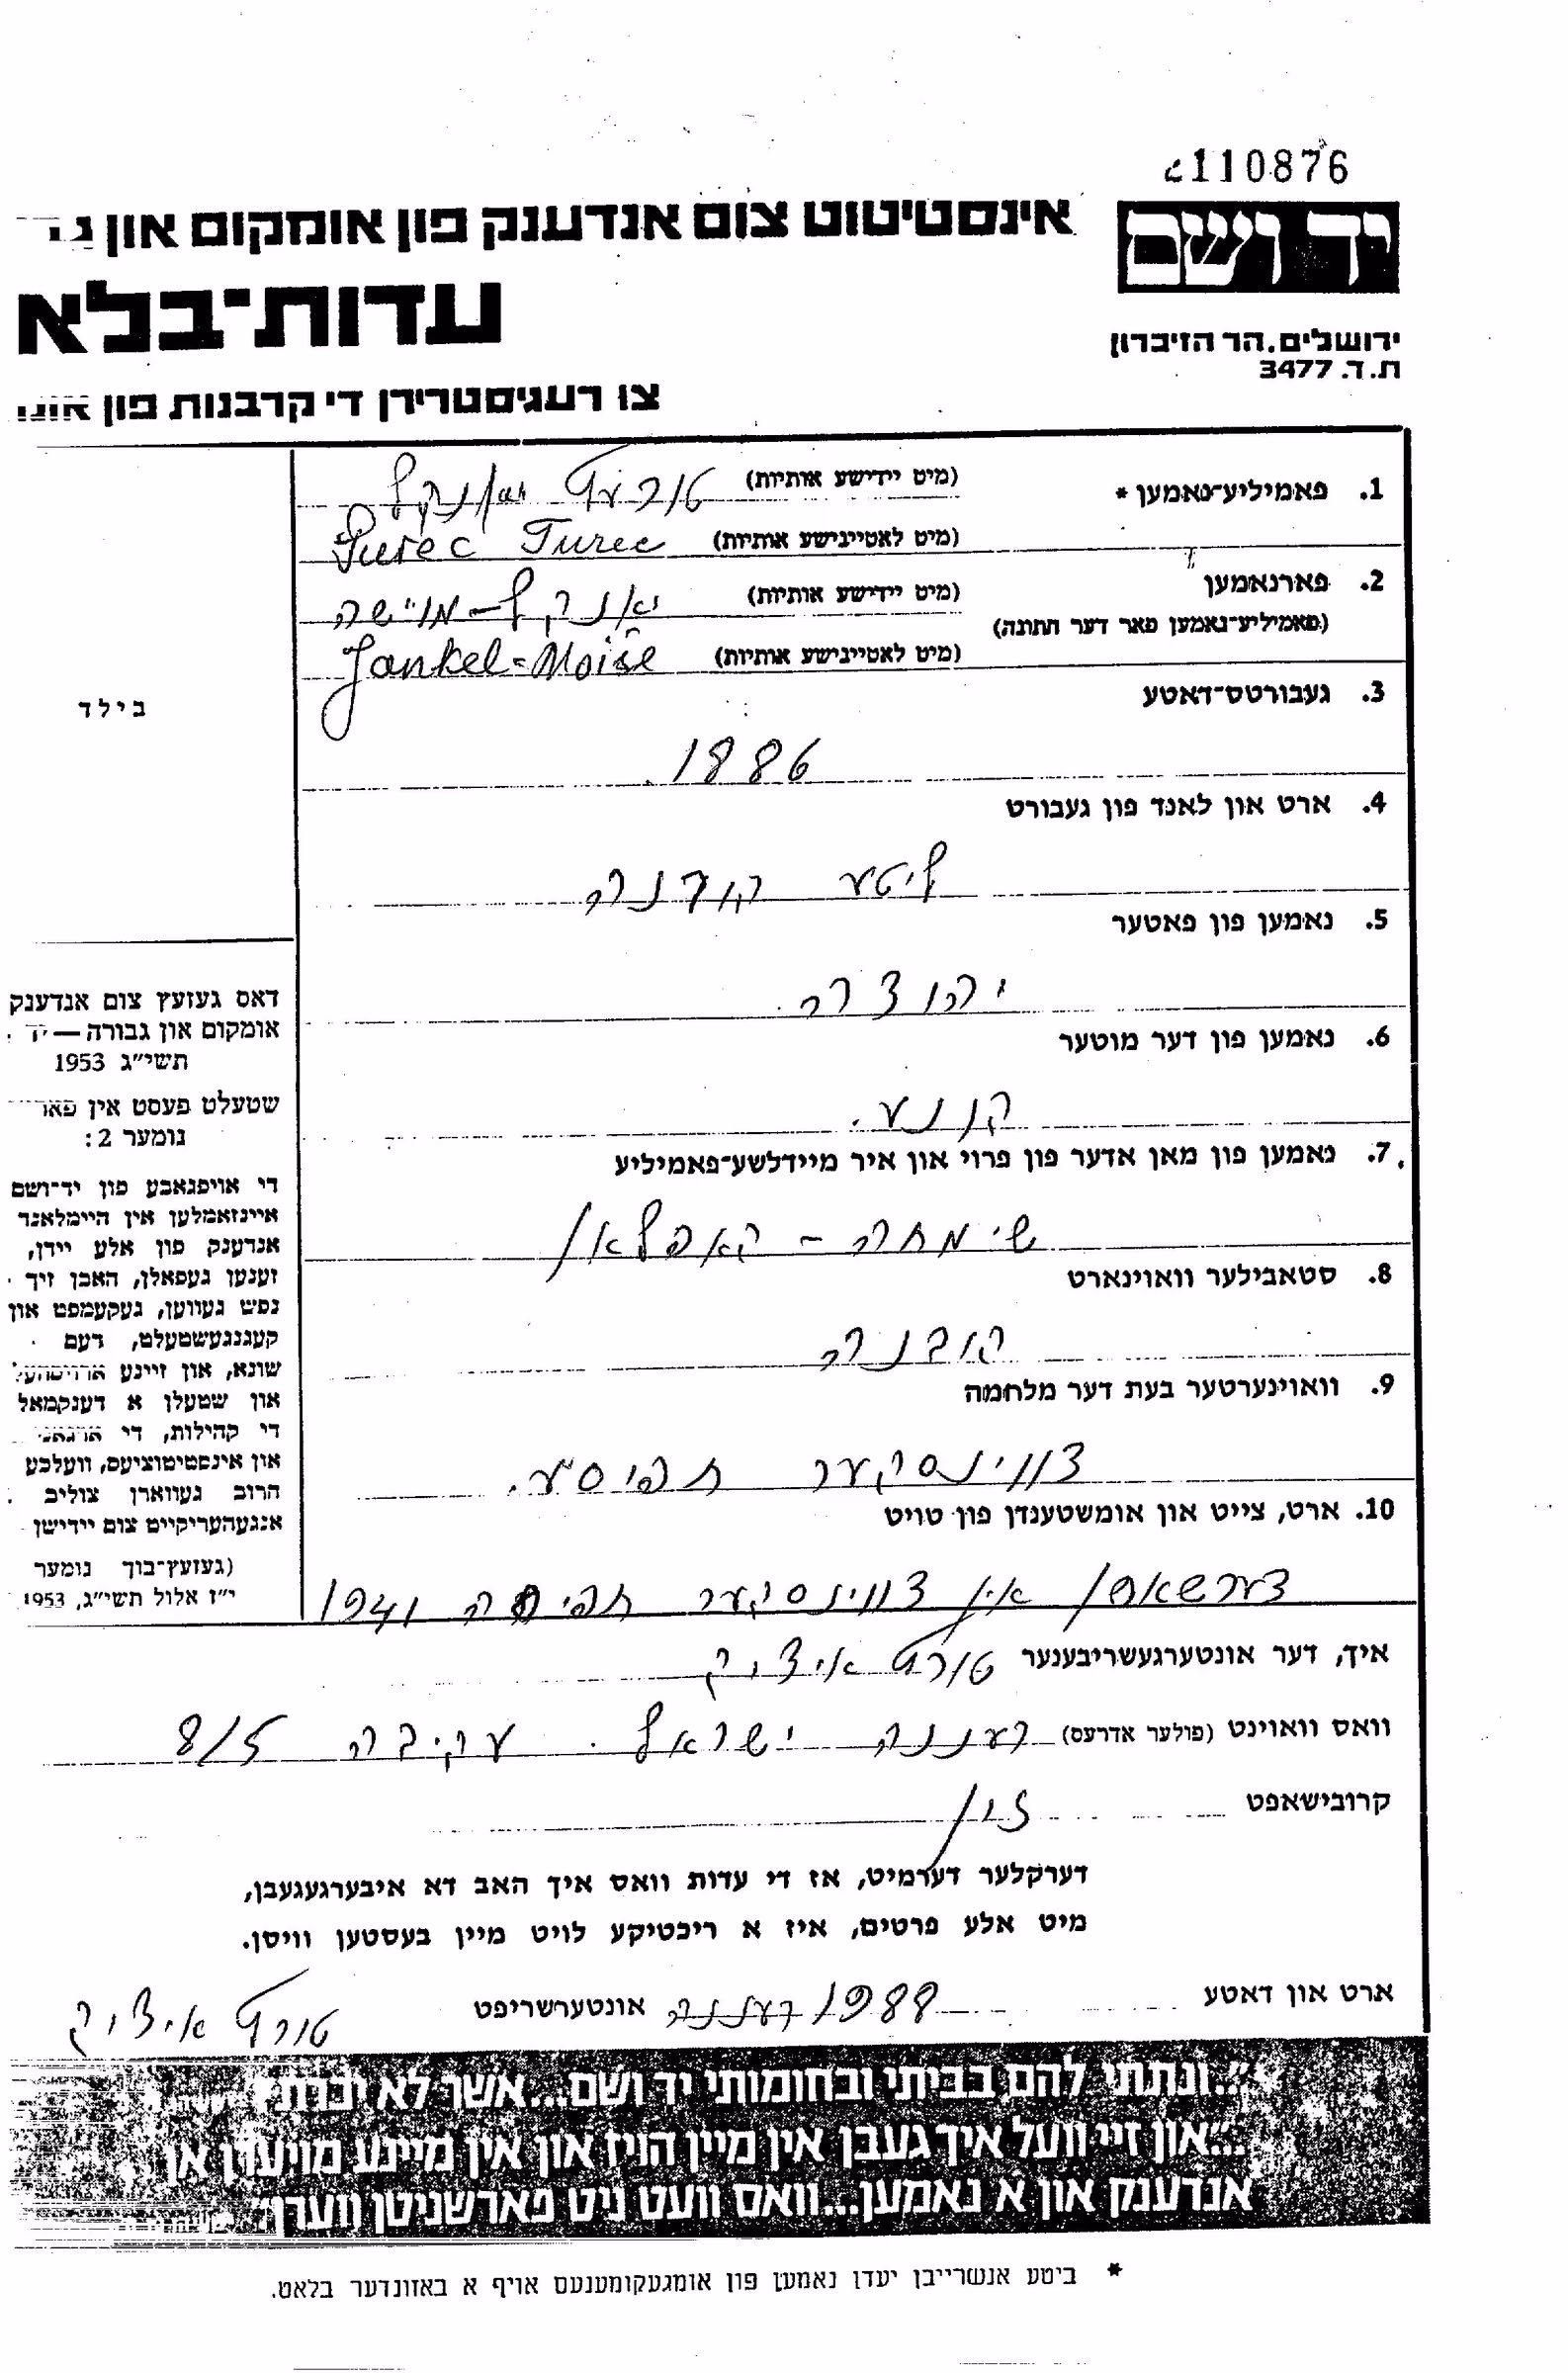 2110876
יד ושם
אינסטיטוט צום אנדענק פון אומקום און
עדות־בלא
ירושלים, הר הזיכרון
ת.ד. 3477
צו רעגיסטרירן די קרבנות פון
1. פאמיליע־נאמען * (מיט יידישע אותיות) טורעץ יאנקל
(מיט לאטיינישע אותיות) Turec Turec
2. פארנאמען (מיט יידישע אותיות) יאנקל-מוישה
(פאמיליע־נאמען פאר דער חתונה)
(מיט לאטיינישע אותיות) Jankel=Moise
בילד
3. געבורטס־דאטע
1886.
4. ארט און לאנד פון געבורט
ליטע קוזנה
5. נאמען פון פאטער
יהודה.
6. נאמען פון דער מוטער
קונע.
7. נאמען פון מאן אדער פון פרוי און איר מיידלשע־פאמיליע
שימחה - קאפלאן
8. סטאבילער וואוינארט
קובנה
9. וואוינערטער בעת דער מלחמה
דווינסקער תפיסע.
10. ארט, צייט און אומשטענדן פון טויט
דערשאסן אין דווינסקער תפיסה 1941
דאס געזעץ צום אנדענק
אומקום און גבורה — יד
תשי״ג 1953
שטעלט פעסט אין
נומער 2:
די אויפגאבע פון יד־ושם
איינזאמלען אין היימלאנד
אנדענק פון אלע יידן,
זענען געפאלן, האבן זיך
נפש געווען, געקעמפט און
קעגנגעשטעלט, דעם
שונא, און זיינע
און שטעלן א דענקמאל
די קהילות, די
און אינסטיטוציעס, וועלכע
הרוב געווארן צוליב
אנגעהעריקייט צום יידישן
(געזעץ־בוך נומער
י״ז אלול תשי״ג, 1953
איך, דער אונטערגעשריבענער טורץ איציק
וואס וואוינט (פולער אדרעס) רעננה ישראל. עקיבה 8/5
קרובישאפט זון
דערקלער דערמיט, אז די עדות וואס איך האב דא איבערגעגעבן,
מיט אלע פרטים, איז א ריכטיקע לויט מיין בעסטען וויסן.
ארט און דאטע 1988 רעננה אונטערשריפט טורץ איציק
"...ונתתי להם בביתי ובחומותי יד ושם...אשר לא יכרת"
"...און זיי וועל איך געבן אין מיין הויז און אין מיינע מויערן אן
אנדענק און א נאמען...וואס וועט ניט פארשניטן ווערן"
* ביטע אנשרייבן יעדן נאמען פון אומגעקומענעם אויף א באזונדער בלאט.